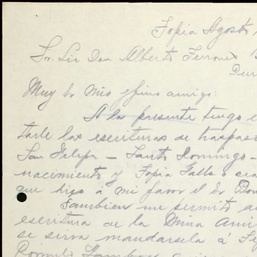 Topia Agosto
Sr. Lic Don Alberto Terrones
Dur
Muy Sr. Mio y fino amigo:
A la presente tengo e
tarle las escrituras de traspas
San Felipe — Santo Domingo —
nacimiento y Topia
que hizo á mi favor el Sr Bo
Tambien me permito
escritura de la Mina
se sirva mandarsela á